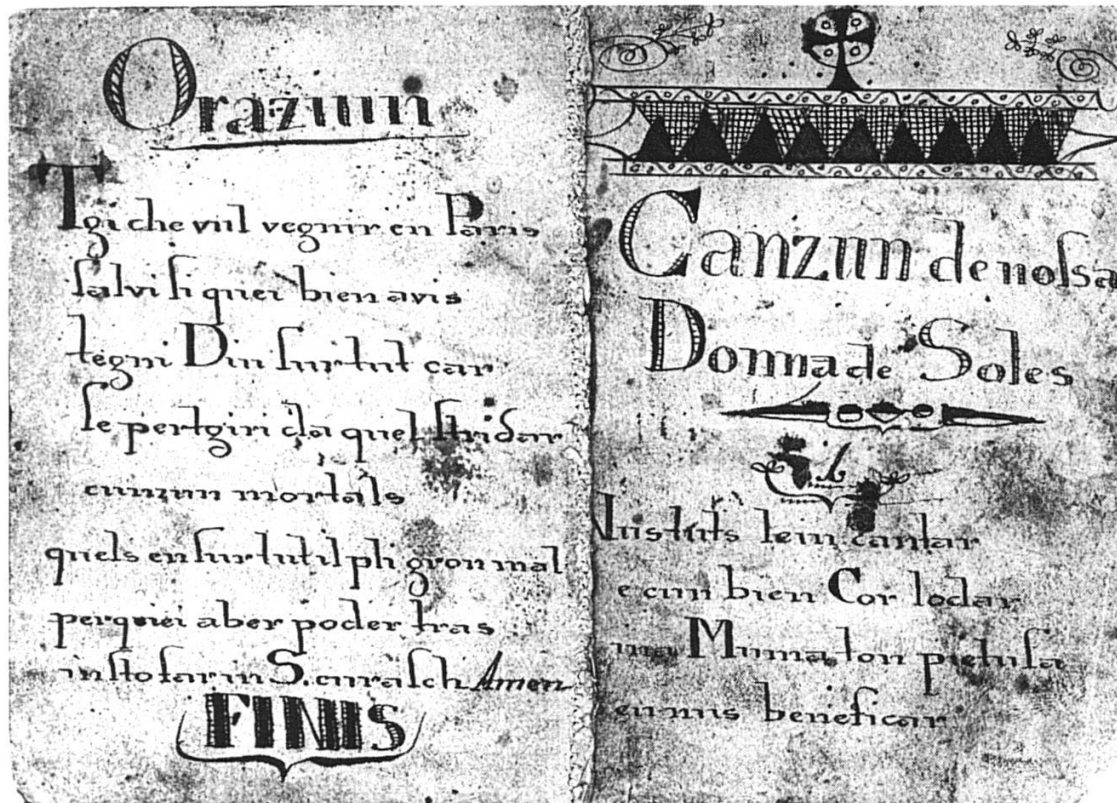 Orazium
Tgi che vul vegnir en Paris
salvi si quei bien avis
tegni Diu surtut car
se pertgiri da quel stridar
cunzun mortals
quels en surtut il pli gron mal
perquei aber poder tras
in sto far in S. curasch Amen
FINIS
Canzun de nossa
Donna de Soles
Nus tuts lein cantar
e cun bien Cor lodar
ina Muma ton pietusa
en nus beneficar